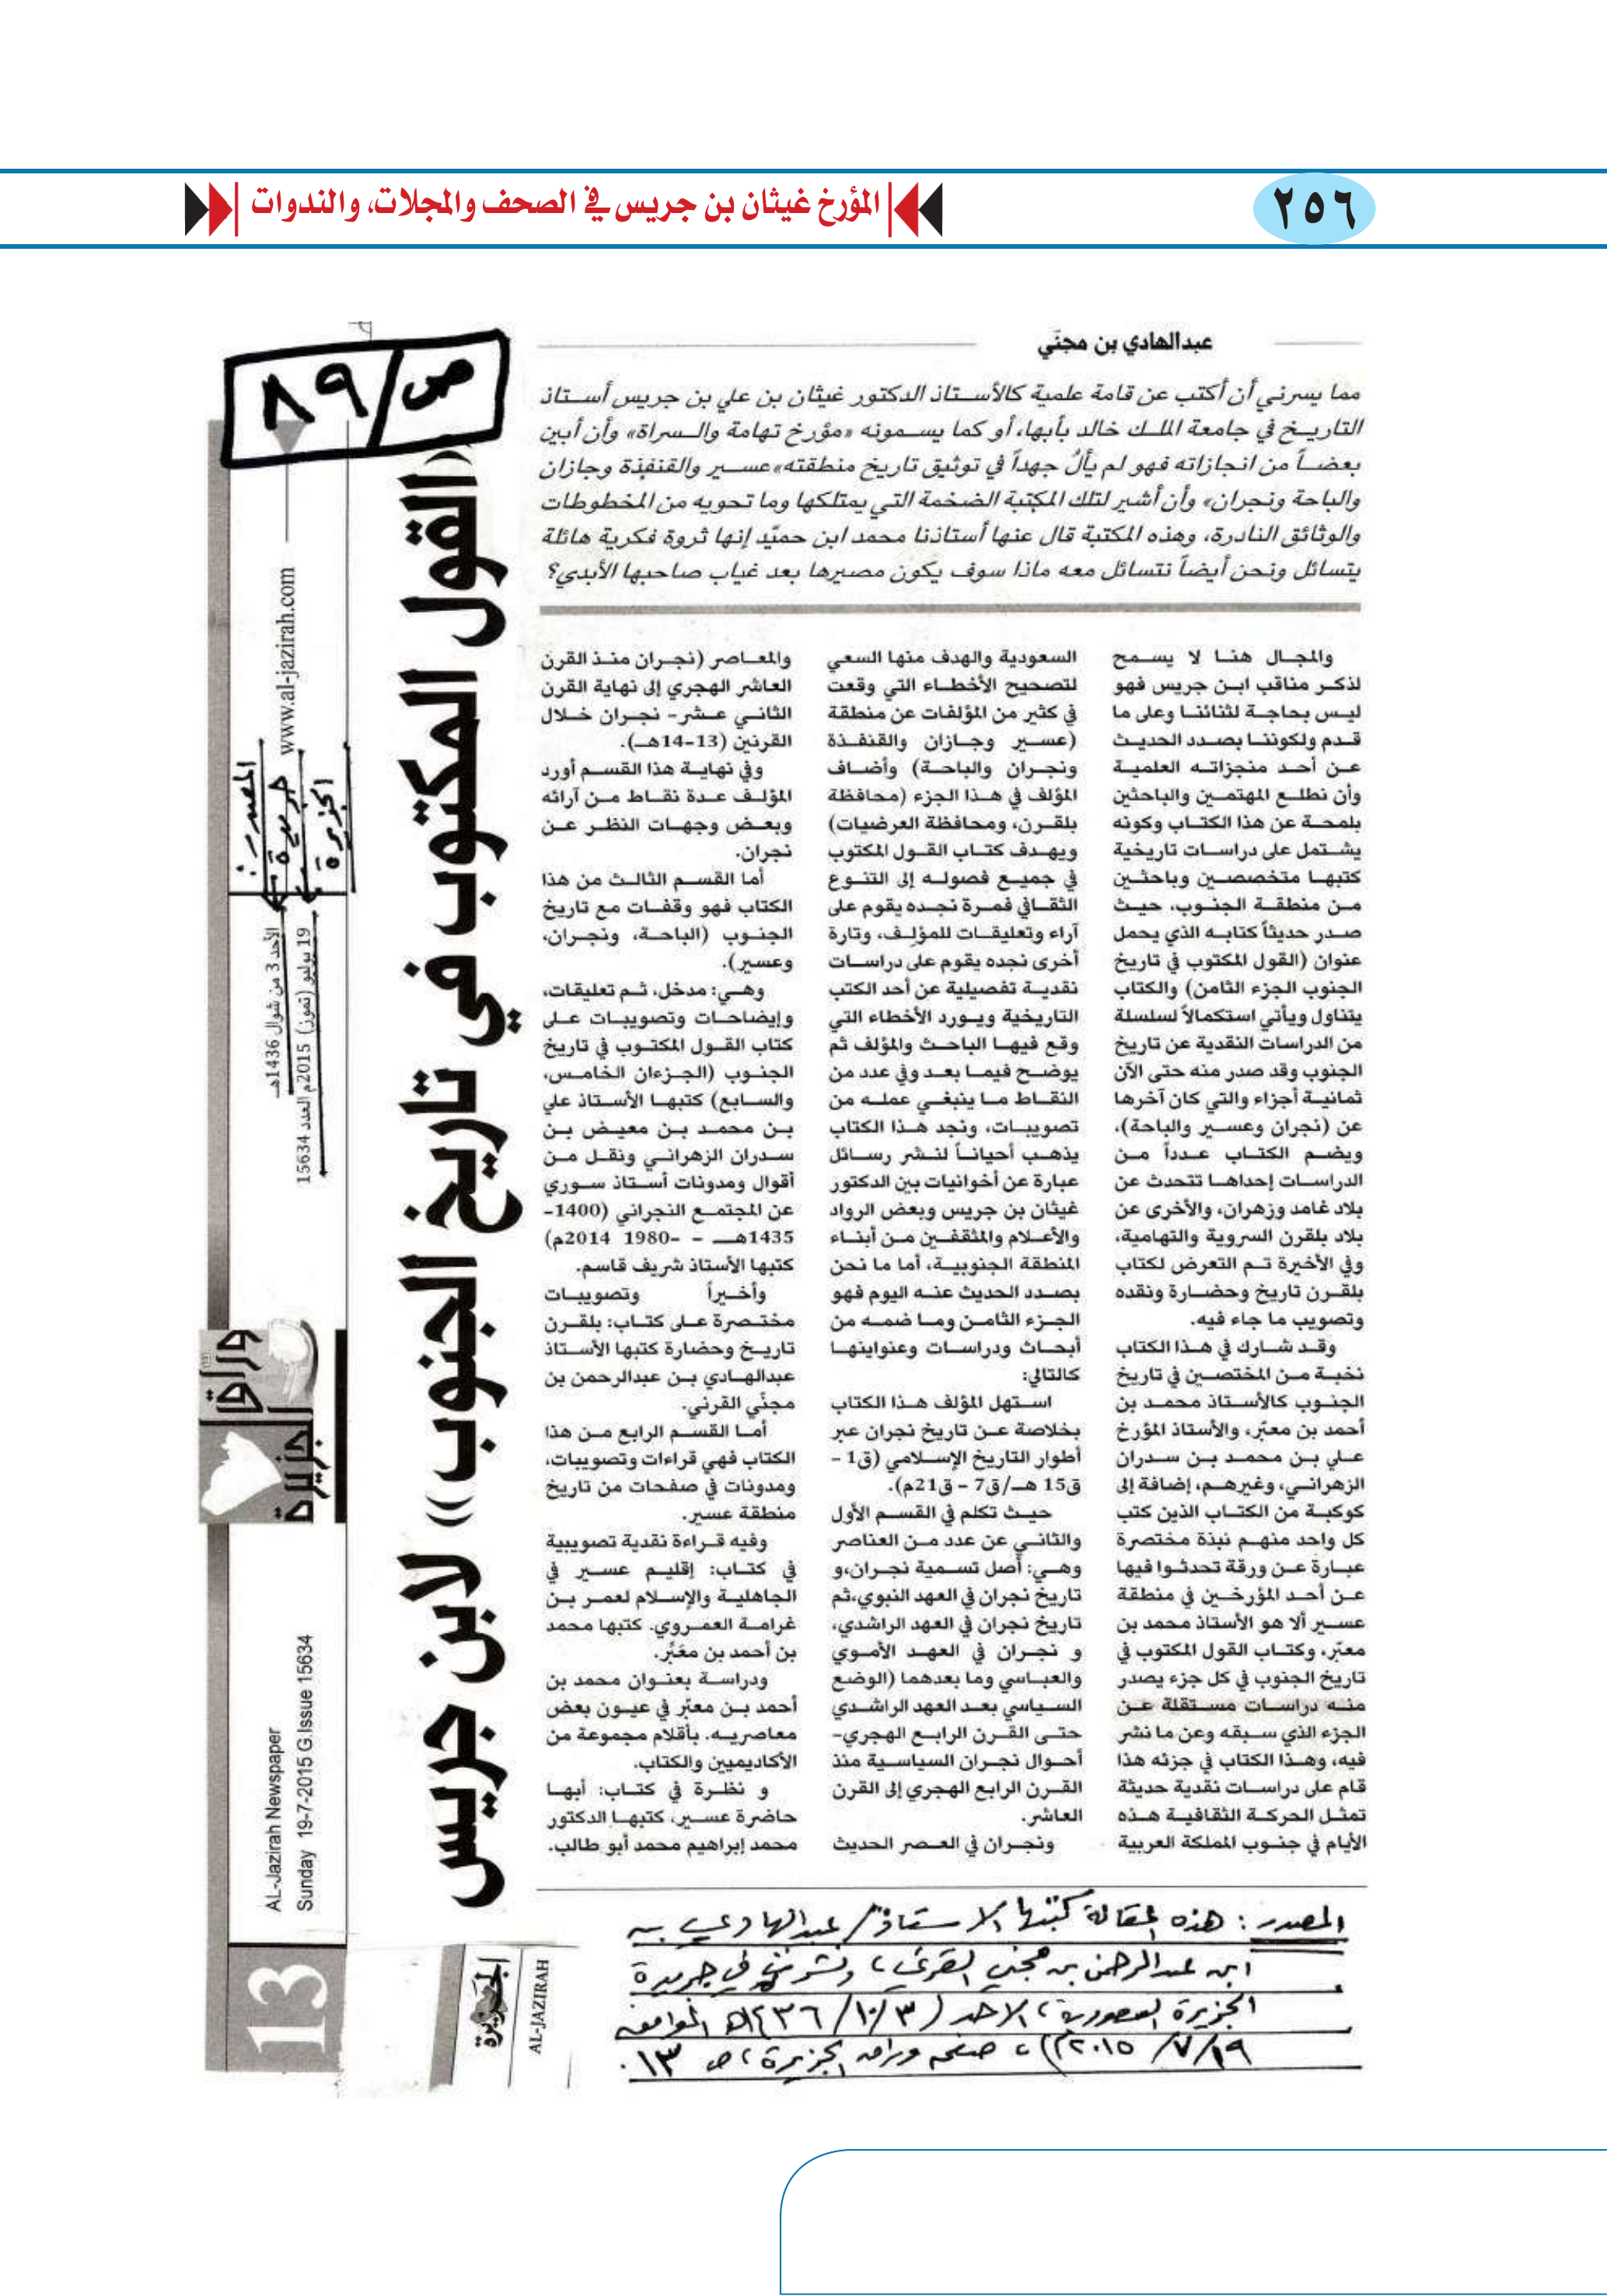 ٢٥٦
المؤرخ غيثان بن جريس في الصحف والمجلات، والندوات
ص/٨٩
((القول المكتوب في تاريخ الجنوب)) لابن جريس
عبدالهادي بن مجنّي
مما يسرني أن أكتب عن قامة علمية كالأستاذ الدكتور غيثان بن علي بن جريس أستاذ
التاريخ في جامعة الملك خالد بأبها، أو كما يسمونه «مؤرخ تهامة والسراة» وأن أبين
بعضاً من انجازاته فهو لم يألُ جهداً في توثيق تاريخ منطقته«عسير والقنفذة وجازان
والباحة ونجران» وأن أشير لتلك المكتبة الضخمة التي يمتلكها وما تحويه من المخطوطات
والوثائق النادرة، وهذه المكتبة قال عنها أستاذنا محمد ابن حميّد إنها ثروة فكرية هائلة
يتسائل ونحن أيضاً نتسائل معه ماذا سوف يكون مصيرها بعد غياب صاحبها الأبدي؟
والمجال هنا لا يسمح
لذكر مناقب ابن جريس فهو
ليس بحاجة لثنائنا وعلى ما
قدم ولكوننا بصدد الحديث
عن أحد منجزاته العلمية
وأن نطلع المهتمين والباحثين
بلمحة عن هذا الكتاب وكونه
يشتمل على دراسات تاريخية
كتبها متخصصين وباحثين
من منطقة الجنوب، حيث
صدر حديثاً كتابه الذي يحمل
عنوان (القول المكتوب في تاريخ
الجنوب الجزء الثامن) والكتاب
يتناول ويأتي استكمالاً لسلسلة
من الدراسات النقدية عن تاريخ
الجنوب وقد صدر منه حتى الآن
ثمانية أجزاء والتي كان آخرها
عن (نجران وعسير والباحة)،
ويضم الكتاب عدداً من
الدراسات إحداها تتحدث عن
بلاد غامد وزهران، والأخرى عن
بلاد بلقرن السروية والتهامية،
وفي الأخيرة تم التعرض لكتاب
بلقرن تاريخ وحضارة ونقده
وتصويب ما جاء فيه.
وقد شارك في هذا الكتاب
نخبة من المختصين في تاريخ
الجنوب كالأستاذ محمد بن
أحمد بن معبّر، والأستاذ المؤرخ
علي بن محمد بن سدران
الزهراني، وغيرهم، إضافة إلى
كوكبة من الكتاب الذين كتب
كل واحد منهم نبذة مختصرة
عبارة عن ورقة تحدثوا فيها
عن أحد المؤرخين في منطقة
عسير ألا هو الأستاذ محمد بن
معبّر، وكتاب القول المكتوب في
تاريخ الجنوب في كل جزء يصدر
منه دراسات مستقلة عن
الجزء الذي سبقه وعن ما نشر
فيه، وهذا الكتاب في جزئه هذا
قام على دراسات نقدية حديثة
تمثل الحركة الثقافية هذه
الأيام في جنوب المملكة العربية
السعودية والهدف منها السعي
لتصحيح الأخطاء التي وقعت
في كثير من المؤلفات عن منطقة
(عسير وجازان والقنفذة
ونجران والباحة) وأضاف
المؤلف في هذا الجزء (محافظة
بلقرن، ومحافظة العرضيات)
ويهدف كتاب القول المكتوب
في جميع فصوله إلى التنوع
الثقافي فمرة نجده يقوم على
آراء وتعليقات للمؤلف، وتارة
أخرى نجده يقوم على دراسات
نقدية تفصيلية عن أحد الكتب
التاريخية ويورد الأخطاء التي
وقع فيها الباحث والمؤلف ثم
يوضح فيما بعد وفي عدد من
النقاط ما ينبغي عمله من
تصويبات، ونجد هذا الكتاب
يذهب أحياناً لنشر رسائل
عبارة عن أخوانيات بين الدكتور
غيثان بن جريس وبعض الرواد
والأعلام والمثقفين من أبناء
المنطقة الجنوبية، أما ما نحن
بصدد الحديث عنه اليوم فهو
الجزء الثامن وما ضمه من
أبحاث ودراسات وعناوينها
كالتالي:
استهل المؤلف هذا الكتاب
بخلاصة عن تاريخ نجران عبر
أطوار التاريخ الإسلامي (ق1 -
ق15 هـ/ق7 - ق21م).
حيث تكلم في القسم الأول
والثاني عن عدد من العناصر
وهي: أصل تسمية نجران،و
تاريخ نجران في العهد النبوي،ثم
تاريخ نجران في العهد الراشدي،
و نجران في العهد الأموي
والعباسي وما بعدهما (الوضع
السياسي بعد العهد الراشدي
حتى القرن الرابع الهجري-
أحوال نجران السياسية منذ
القرن الرابع الهجري إلى القرن
العاشر.
ونجران في العصر الحديث
والمعاصر (نجران منذ القرن
العاشر الهجري إلى نهاية القرن
الثاني عشر- نجران خلال
القرنين (13-14هـ).
وفي نهاية هذا القسم أورد
المؤلف عدة نقاط من آرائه
وبعض وجهات النظر عن
نجران.
أما القسم الثالث من هذا
الكتاب فهو وقفات مع تاريخ
الجنوب (الباحة، ونجران،
وعسير).
وهي: مدخل، ثم تعليقات،
وإيضاحات وتصويبات على
كتاب القول المكتوب في تاريخ
الجنوب (الجزءان الخامس،
والسابع) كتبها الأستاذ علي
بن محمد بن معيض بن
سدران الزهراني ونقل من
أقوال ومدونات أستاذ سوري
عن المجتمع النجراني (1400-
1435هـ - -1980 2014م)
كتبها الأستاذ شريف قاسم.
وأخيراً وتصويبات
مختصرة على كتاب: بلقرن
تاريخ وحضارة كتبها الأستاذ
عبدالهادي بن عبدالرحمن بن
مجنّي القرني.
أما القسم الرابع من هذا
الكتاب فهي قراءات وتصويبات،
ومدونات في صفحات من تاريخ
منطقة عسير.
وفيه قراءة نقدية تصويبية
في كتاب: إقليم عسير في
الجاهلية والإسلام لعمر بن
غرامة العمروي. كتبها محمد
بن أحمد بن معَبَّر.
ودراسة بعنوان محمد بن
أحمد بن معبّر في عيون بعض
معاصريه. بأقلام مجموعة من
الأكاديميين والكتاب.
و نظرة في كتاب: أبها
حاضرة عسير، كتبها الدكتور
محمد إبراهيم محمد أبو طالب.
www.al-jazirah.com
المصدر:
جريدة
الجزيرة
الأحد 3 من شوال 1436هـ
19 يوليو (تموز) 2015م العدد 15634
وراق
الجزيرة
AL-Jazirah Newspaper
Sunday 19-7-2015 G.Issue 15634
13
الجزيرة
AL-JAZIRAH
المصدر: هذه المقالة كتبها الاستاذ/ عبدالهادي بن
ابن عبدالرحمن بن مجني القرني، ونشرت في جريدة
الجزيرة السعودية، الاحد (١٤٣٦/١٠/٣هـ الموافق
٢٠١٥/٧/١٩م)، صفحة وراق الجزيرة، ص ١٣.